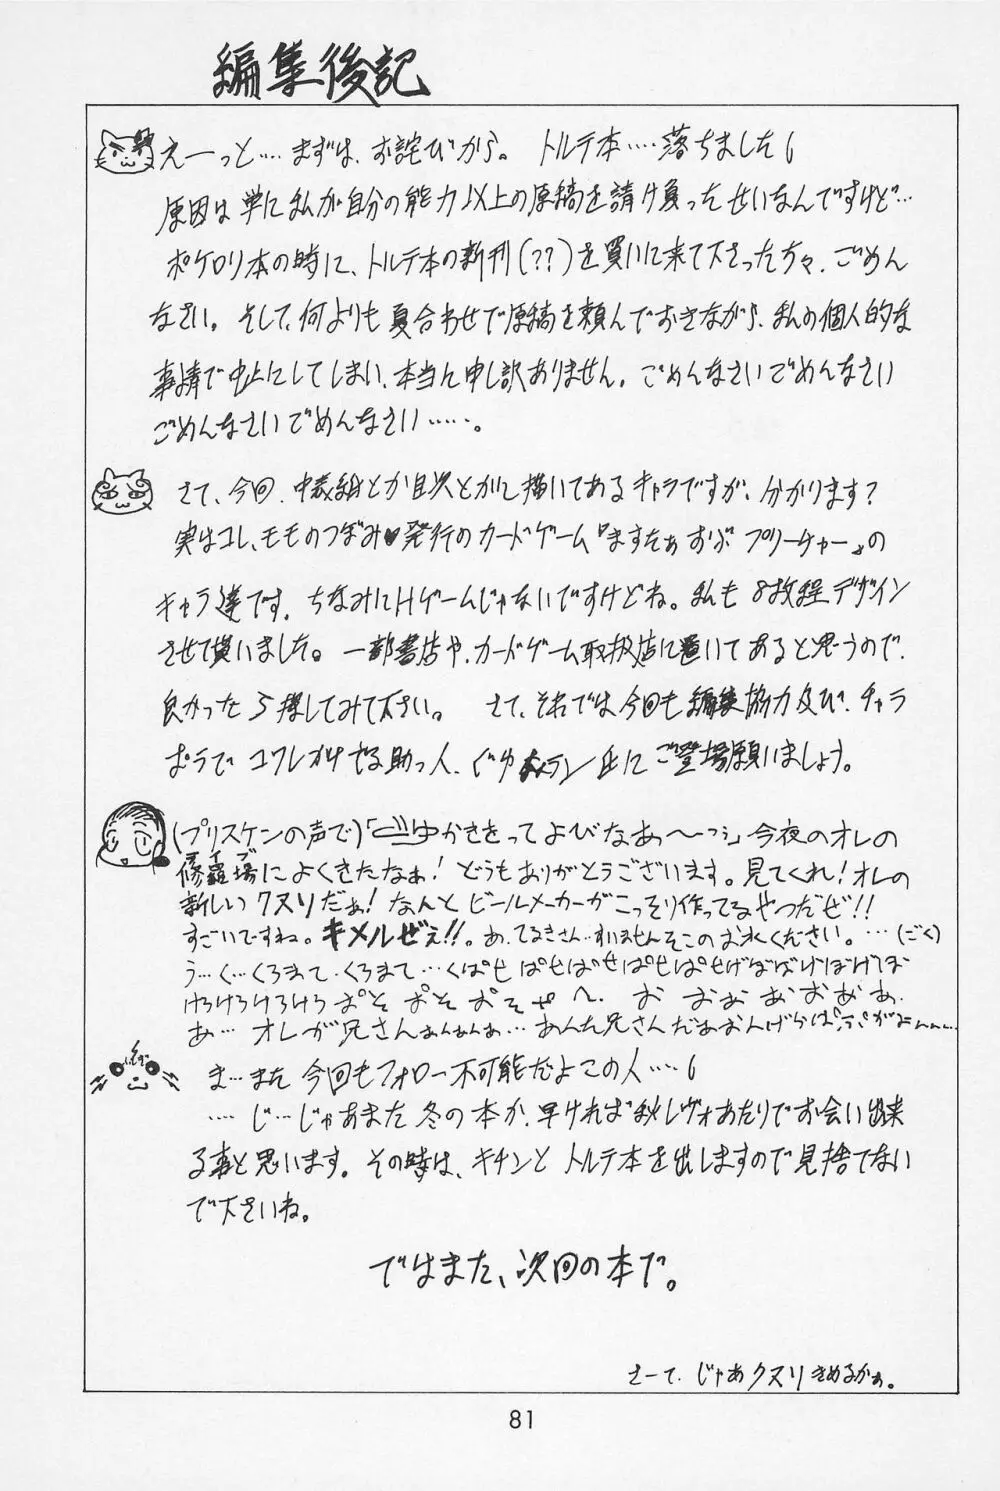 編集後記
えーっと…まずは、お詫びから。 トルテ本…落ちました
原因は単に私が自分の能力以上の原稿を請け負ったせいなんですけど…
ポケロリ本の時に、トルテ本の新刊(??)を買いに来て下さった方々、ごめん
なさい。そして、何よりも夏合わせで原稿を頼んでおきながら、私の個人的な
事情で中止にしてしまい、本当に申し訳ありません。ごめんなさいごめんなさい
ごめんなさいごめんなさい……。
さて、今回、中表紙とか目次とかに描いてあるキャラですが、分かります?
実はコレ、モモのつぼみ♥発行のカードゲーム『ますたぁおぶ プリーチャー』の
キャラ達です。ちなみにHゲームじゃないですけどね。私も8枚程デザイン
させて貰いました。一部書店や、カードゲーム取扱店に置いてあると思うので、
良かったら探してみて下さい。 さて、それでは今回も編集協力及び、チャラ
ポラでコワレかけてる助っ人、 氏にご登場願いましょう。
(プリスケンの声で)「 ゆかさきってよびなぁ〜っ」今夜のオレの
修羅場によくきたなぁ!どうもありがとうございます。見てくれ!オレの
新しいクスリだぁ!なんとビールメーカーがこっそり作ってるやつだぜ!!
すごいですね。キメルぜぇ!!。あ、てるきさん、すいませんそこのお水ください。…(ごく)
う…く…くろまて、くろまて…くぱせぱせばせぱせぱせげばばげぼげぼ
けろけろけろけろおそおそおそ
あ…オレが兄さんぉぉぉぁ…あんた兄さんだぁ
ま…また今回もフォロー不可能だよこの人……
……じ…じゃあまた冬の本か、早ければ秋レヴォあたりでお会い出来
る事と思います。その時は、キチンとトルテ本を出しますので見捨てない
で下さいね。
ではまた、次回の本で。
さーて、じゃあクスリきめるかぁ。
81